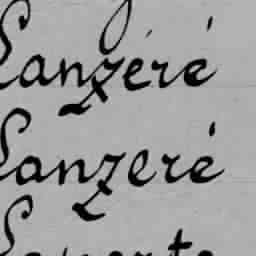 Lanzéré
Lanzeré